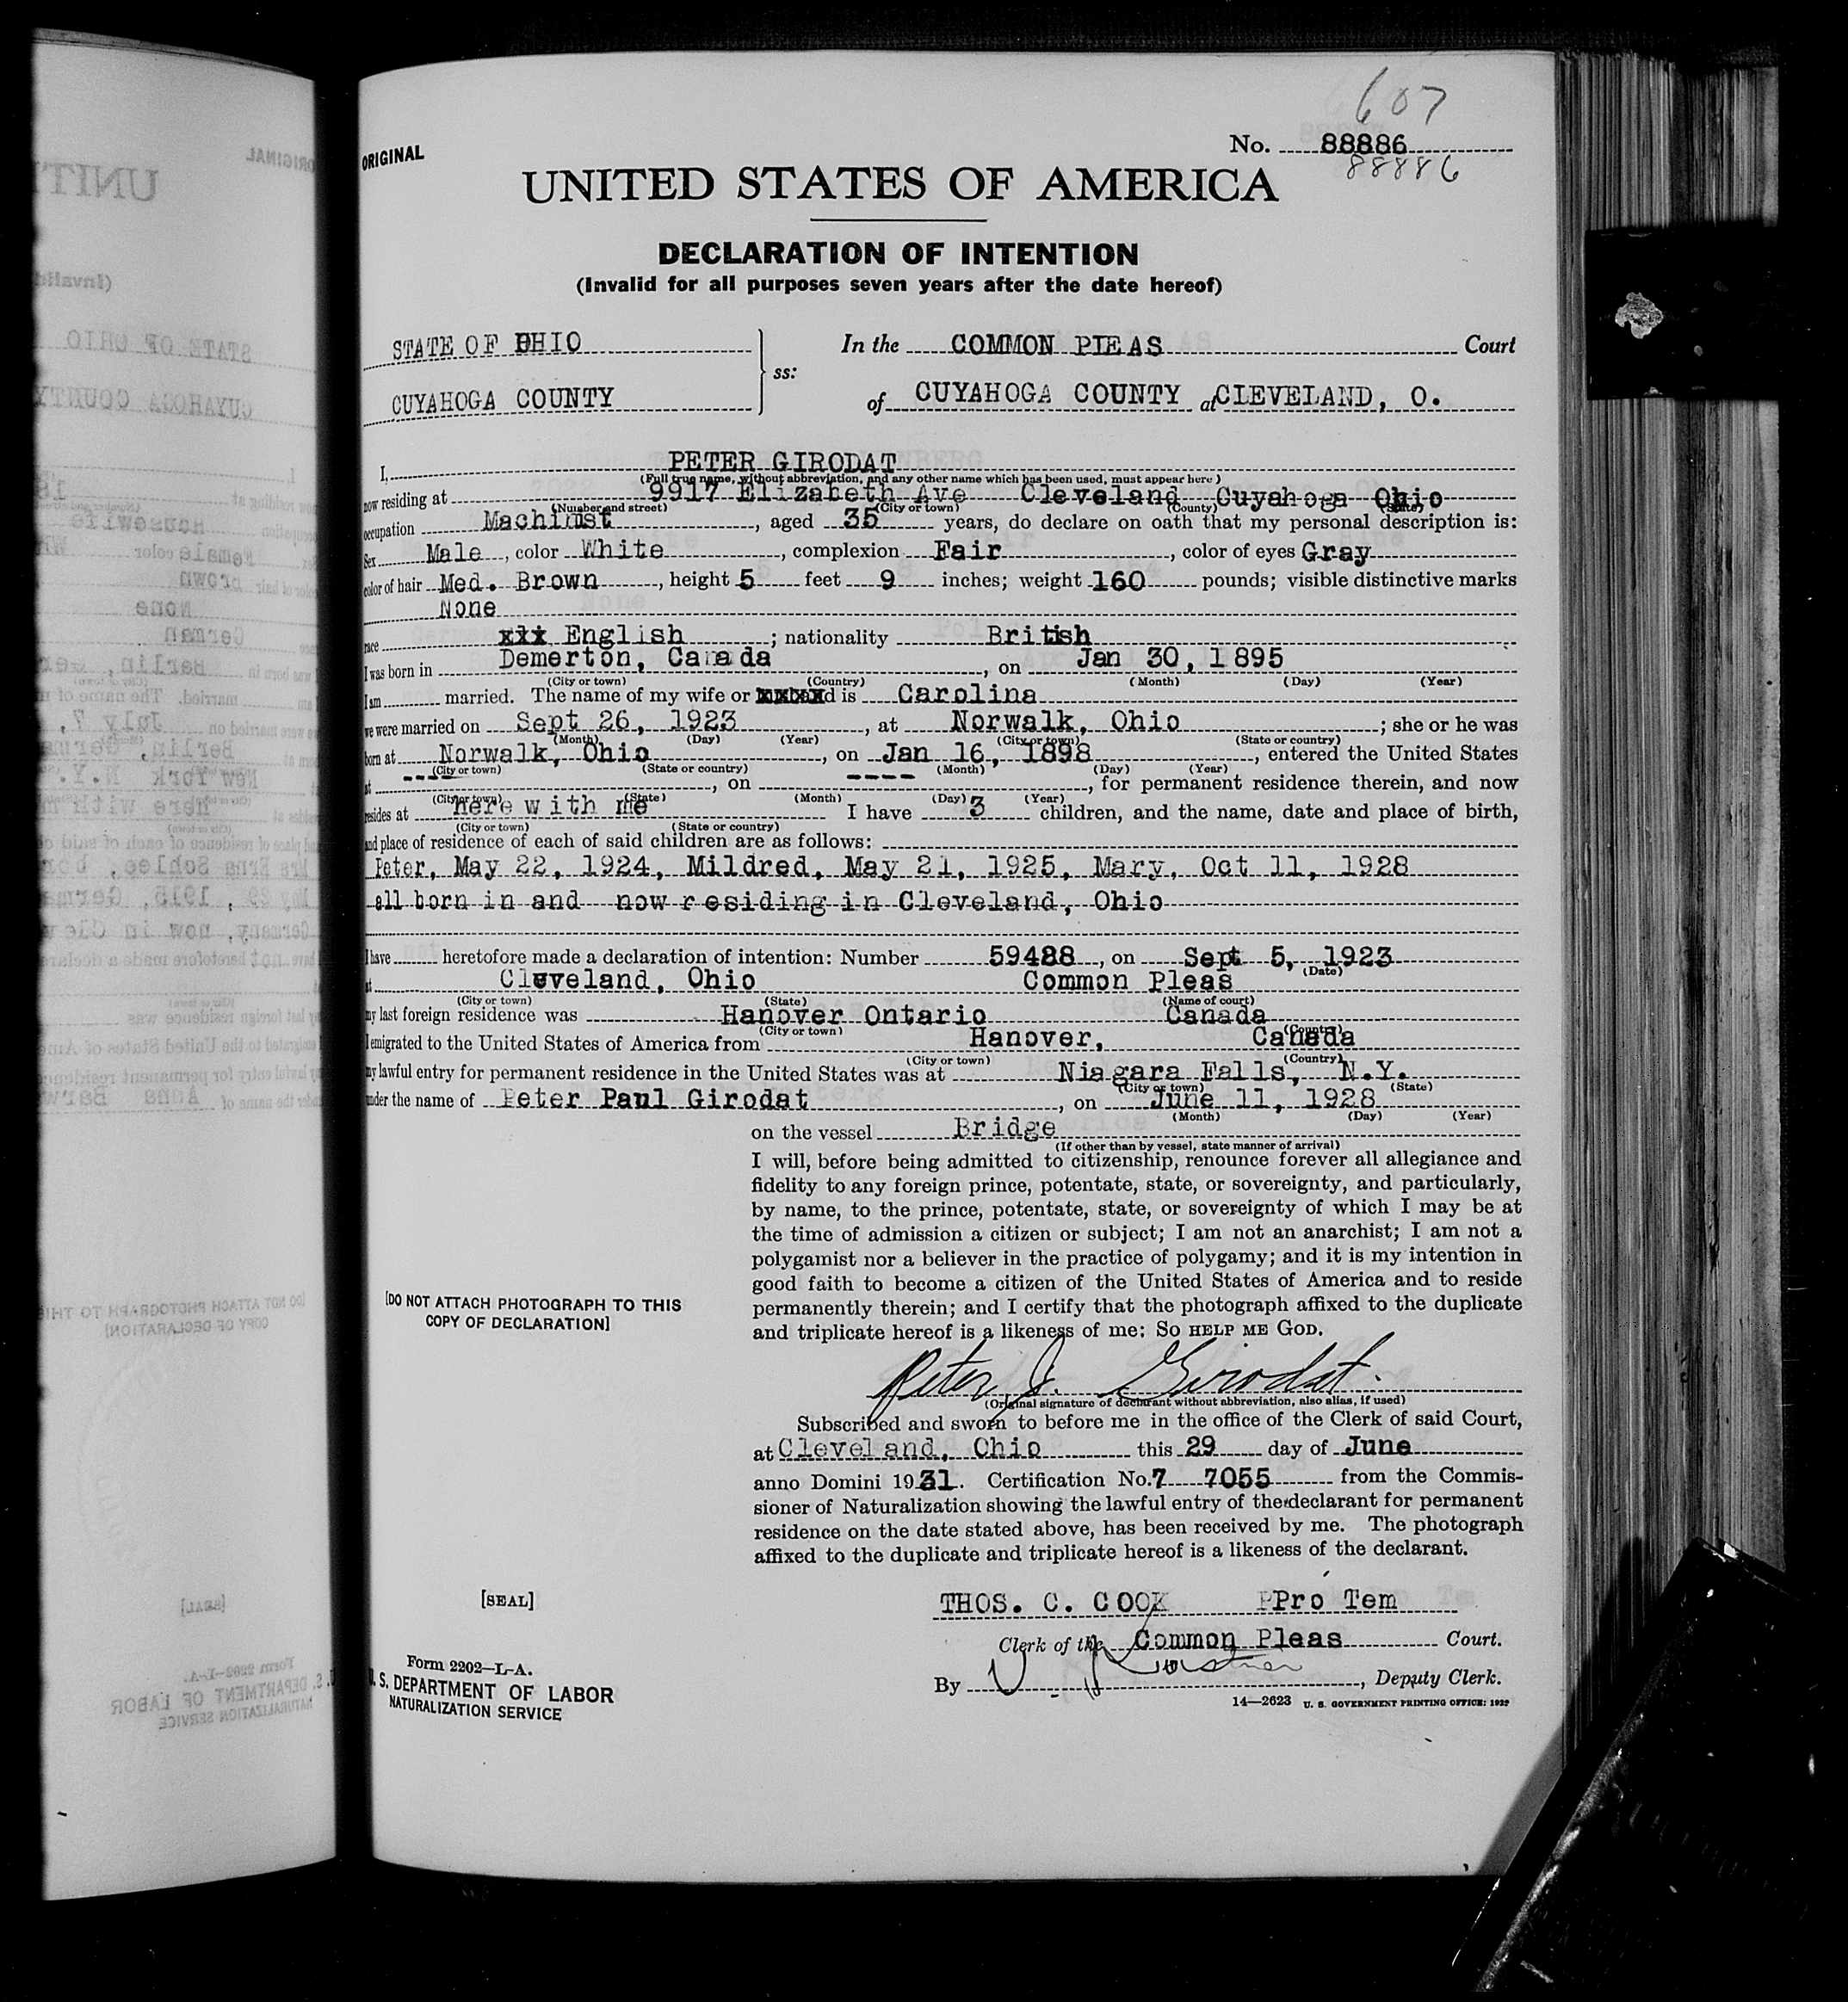 607
ORIGINAL
No. 88886
88886
UNITED STATES OF AMERICA
DECLARATION OF INTENTION
(Invalid for all purposes seven years after the date hereof)
STATE OF OHIO
CUYAHOGA COUNTY
ss:
In the COMMON PLEAS Court
of CUYAHOGA COUNTY at CLEVELAND, O.
I, PETER GIRODAT
(Full true name, without abbreviation, and any other name which has been used, must appear here)
now residing at 9917 Elizabeth Ave Cleveland Cuyahoga Ohio
(Number and street) (City or town) (County) (State)
occupation Machinst, aged 35 years, do declare on oath that my personal description is:
Sex Male, color White, complexion Fair, color of eyes Gray
color of hair Med. Brown, height 5 feet 9 inches; weight 160 pounds; visible distinctive marks
None
race xxx English; nationality British
I was born in Demerton, Canada, on Jan 30, 1895
(City or town) (Country) (Month) (Day) (Year)
I am married. The name of my wife or xxxxxd is Carolina
we were married on Sept 26, 1923, at Norwalk, Ohio; she or he was
(Month) (Day) (Year) (City or town) (State or country)
born at Norwalk, Ohio, on Jan 16, 1898, entered the United States
(City or town) (State or country) (Month) (Day) (Year)
at ----, on ----, for permanent residence therein, and now
(City or town) (State) (Month) (Day) (Year)
resides at here with me I have 3 children, and the name, date and place of birth,
(City or town) (State or country)
and place of residence of each of said children are as follows:
Peter, May 22, 1924, Mildred, May 21, 1925, Mary, Oct 11, 1928
all born in and now residing in Cleveland, Ohio
I have heretofore made a declaration of intention: Number 59488, on Sept 5, 1923
(Date)
at Cleveland, Ohio Common Pleas
(City or town) (State) (Name of court)
my last foreign residence was Hanover Ontario Canada
(City or town) (Country)
I emigrated to the United States of America from Hanover, Canada
(City or town) (Country)
my lawful entry for permanent residence in the United States was at Niagara Falls, N.Y.
(City or town) (State)
under the name of Peter Paul Girodat, on June 11, 1928
(Month) (Day) (Year)
on the vessel Bridge
(If other than by vessel, state manner of arrival)
I will, before being admitted to citizenship, renounce forever all allegiance and
fidelity to any foreign prince, potentate, state, or sovereignty, and particularly,
by name, to the prince, potentate, state, or sovereignty of which I may be at
the time of admission a citizen or subject; I am not an anarchist; I am not a
polygamist nor a believer in the practice of polygamy; and it is my intention in
good faith to become a citizen of the United States of America and to reside
permanently therein; and I certify that the photograph affixed to the duplicate
and triplicate hereof is a likeness of me: SO HELP ME GOD.
[DO NOT ATTACH PHOTOGRAPH TO THIS
COPY OF DECLARATION]
Peter J. Girodat.
(Original signature of declarant without abbreviation, also alias, if used)
Subscribed and sworn to before me in the office of the Clerk of said Court,
at Cleveland, Ohio this 29 day of June
anno Domini 1931. Certification No. 7 7055 from the Commis-
sioner of Naturalization showing the lawful entry of the declarant for permanent
residence on the date stated above, has been received by me. The photograph
affixed to the duplicate and triplicate hereof is a likeness of the declarant.
[SEAL]
THOS. C. COOK PPro Tem
Clerk of the Common Pleas Court.
By , Deputy Clerk.
Form 2202-L-A.
U. S. DEPARTMENT OF LABOR
NATURALIZATION SERVICE
14—2623 U. S. GOVERNMENT PRINTING OFFICE: 1929